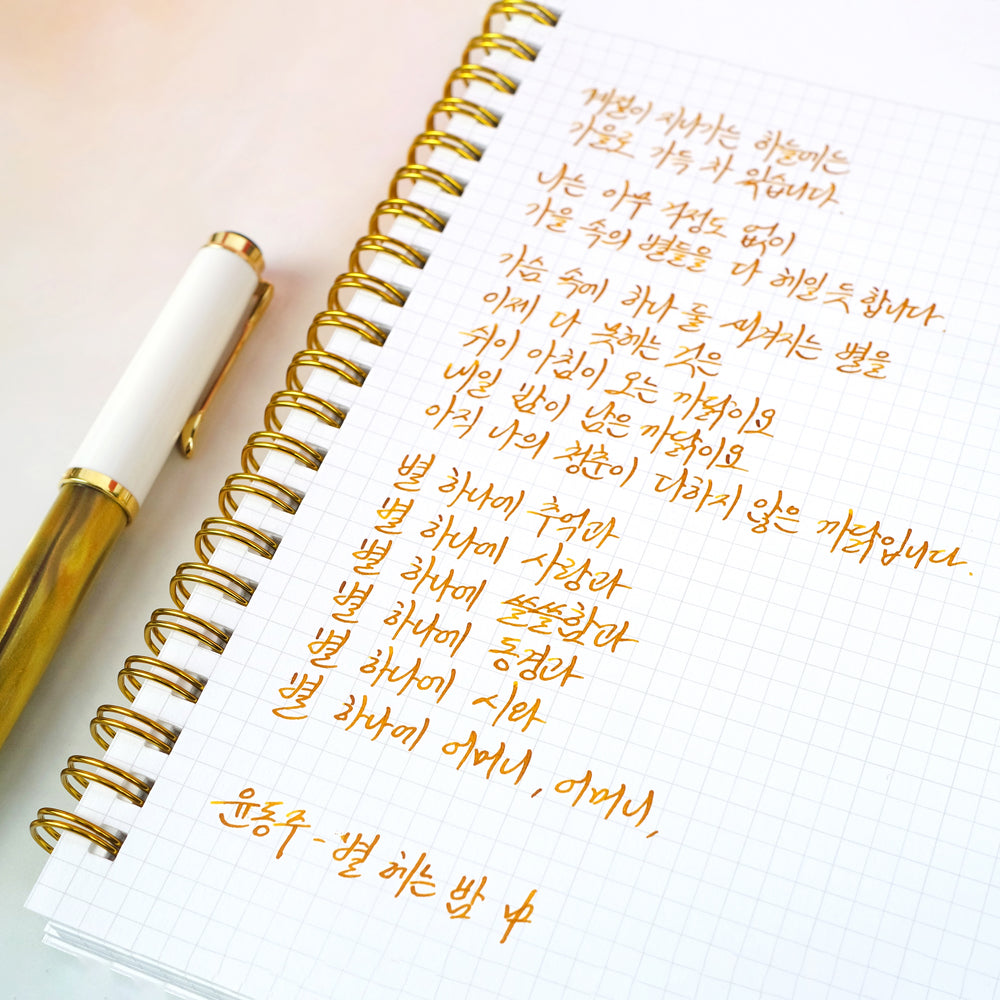 계절이 지나가는 하늘에는
가을로 가득 차 있습니다.
나는 아무 걱정도 없이
가을 속의 별들을 다 헤일 듯합니다.
가슴 속에 하나 둘 새겨지는 별을
이제 다 못헤는 것은
쉬이 아침이 오는 까닭이요
내일 밤이 남은 까닭이요
아직 나의 청춘이 다하지 않은 까닭입니다.
별 하나에 추억과
별 하나에 사랑과
별 하나에 쓸쓸함과
별 하나에 동경과
별 하나에 시와
별 하나에 어머니, 어머니,
윤동주 - 별 헤는 밤 中